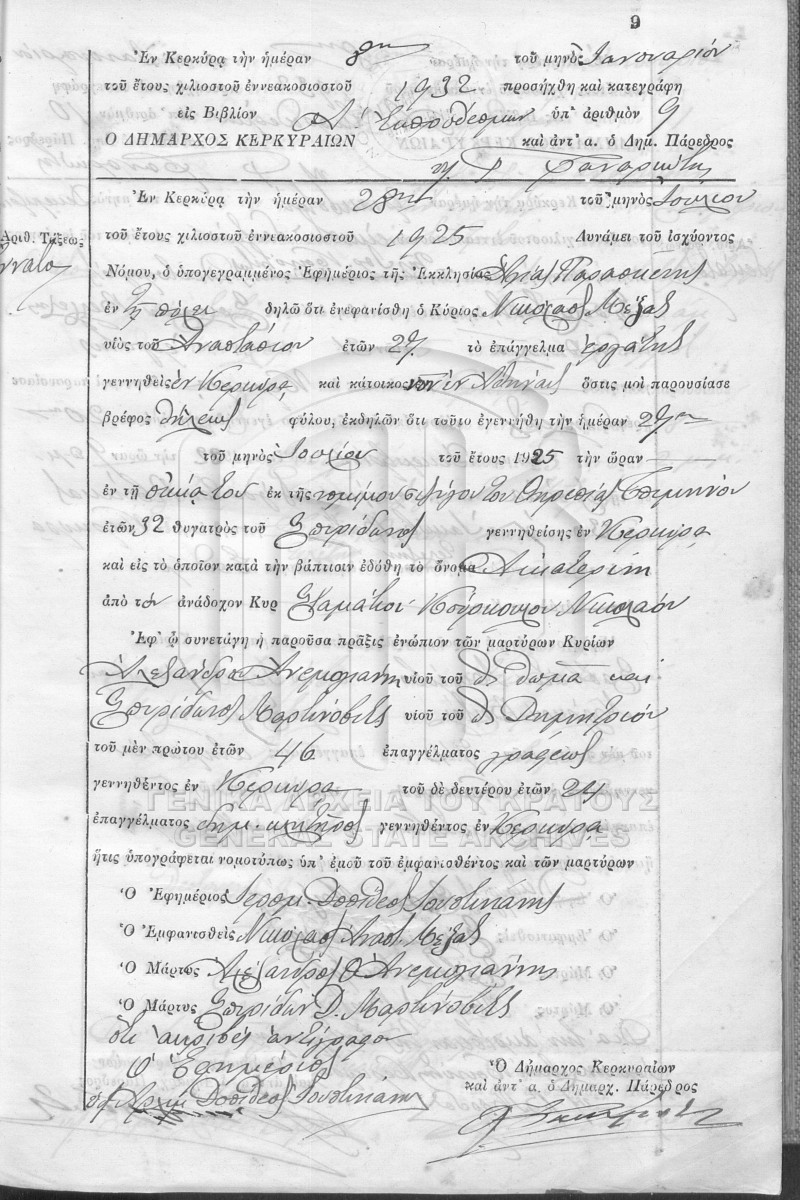 9
Ἐν Κερκύρᾳ τὴν ἡμέραν 8ην τοῦ μηνὸς Ἰανουαρίου
τοῦ ἔτους χιλιοστοῦ ἐννεακοσιοστοῦ 1932 προσήχθη καὶ κατεγράφη
εἰς Βιβλίον Α' Ἐκπροθέσμων ὑπ' ἀριθμὸν 9
Ο ΔΗΜΑΡΧΟΣ ΚΕΡΚΥΡΑΙΩΝ καὶ ἀντ' α. ὁ Δημ. Πάρεδρος
Ἐν Κερκύρᾳ τὴν ἡμέραν 28ην τοῦ μηνὸς Ἰουλίου
Ἀριθ. Τάξεως
τοῦ ἔτους χιλιοστοῦ ἐννεακοσιοστοῦ 1925 Δυνάμει τοῦ ἰσχύοντος
Νόμου, ὁ ὑπογεγραμμένος Ἐφημέριος τῆς Ἐκκλησίας Ἁγίας Παρασκευῆς
ἐν τῇ πόλει δηλῶ ὅτι ἐνεφανίσθη ὁ Κύριος Νικόλαος Μεξᾶς
υἱὸς τοῦ Ἀναστασίου ἐτῶν 27 τὸ ἐπάγγελμα ἐργάτης
γεννηθεὶς ἐν Κερκύρᾳ καὶ κάτοικος νῦν ἐν Ἀθήναις ὅστις μοὶ παρουσίασε
βρέφος θήλεως φύλου, ἐκδηλῶν ὅτι τοῦτο ἐγεννήθη τὴν ἡμέραν 27ην
τοῦ μηνὸς Ἰουλίου τοῦ ἔτους 1925 τὴν ὥραν —
ἐν τῇ οἰκίᾳ του ἐκ τῆς νομίμου συζύγου του
ἐτῶν 32 θυγατρὸς τοῦ Σπυρίδωνος γεννηθείσης ἐν Κερκύρᾳ
καὶ εἰς τὸ ὁποῖον κατὰ τὴν βάπτισιν ἐδόθη τὸ ὄνομα Αἰκατερίνη
ἀπὸ τὸν ἀνάδοχον Κυρ Σταμάτιον Νικολάου
Ἐφ' ᾧ συνετάγη ἡ παροῦσα πρᾶξις ἐνώπιον τῶν μαρτύρων Κυρίων
Ἀλεξάνδρου Ἀνεμογιάννη υἱοῦ τοῦ Θωμᾶ καὶ
Σπυρίδωνος Μαρτινόβιτς υἱοῦ τοῦ Δημητρίου
τοῦ μὲν πρώτου ἐτῶν 46 ἐπαγγέλματος γραφέως
γεννηθέντος ἐν Κερκύρᾳ τοῦ δὲ δευτέρου ἐτῶν 24
ΓΕΝΙΚΑ ΑΡΧΕΙΑ ΤΟΥ ΚΡΑΤΟΥΣ
ἐπαγγέλματος δημ. κλητῆρος γεννηθέντος ἐν Κερκύρᾳ
GENERAL STATE ARCHIVES
ἥτις ὑπογράφεται νομοτύπως ὑπ' ἐμοῦ τοῦ ἐμφανισθέντος καὶ τῶν μαρτύρων
Ὁ Ἐφημέριος Ἱερομ. Δοσίθεος Ἰουστινιάνης
Ὁ Ἐμφανισθεὶς Νικόλαος Ἀναστ. Μεξᾶς
Ὁ Μάρτυς Ἀλέξανδρος Θ Ἀνεμογιάννης
Ὁ Μάρτυς Σπυρίδων Δ. Μαρτινόβιτς
ὅτι ἀκριβὲς ἀντίγραφον
Ὁ Ἐφημέριος
Ἀρχιμ Δοσίθεος Ἰουστινιάνης
Ὁ Δήμαρχος Κερκυραίων
καὶ ἀντ' α. ὁ Δημαρχ. Πάρεδρος